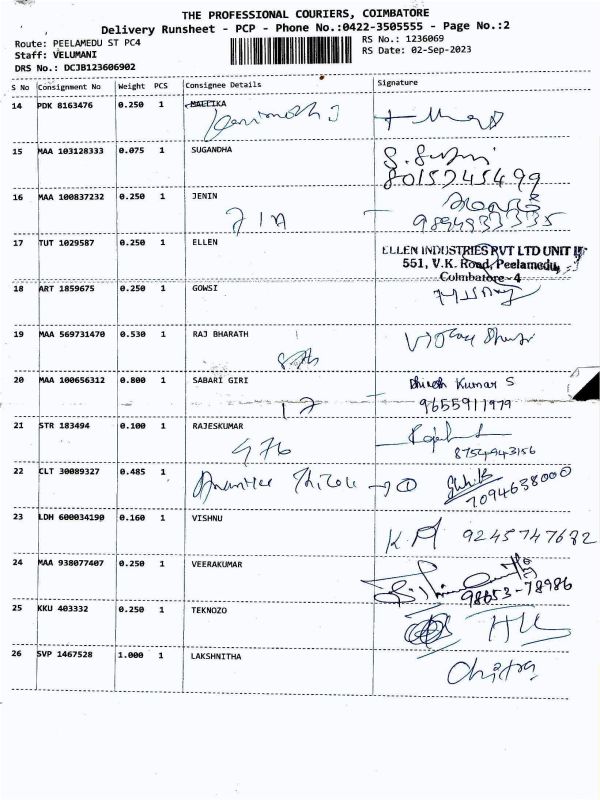 THE PROFESSIONAL COURIERS, COIMBATORE
Delivery Runsheet - PCP - Phone No.:0422-3505555 - Page No.:2
Route: PEELAMEDU ST PC4
RS No.: 1236069
Staff: VELUMANI
RS Date: 02-Sep-2023
DRS No.: DCJB123606902
S No Consignment No Weight PCS Consignee Details Signature
14 PDK 8163476 0.250 1 MALLIKA
15 MAA 103128333 0.075 1 SUGANDHA
8015245499
16 MAA 100837232 0.250 1 JENIN
17 TUT 1029587 0.250 1 ELLEN
ELLEN INDUSTRIES PVT LTD UNIT II
551, V.K. Road, Peelamedu,
Coimbatore-4
18 ART 1859675 0.250 1 GOWSI
19 MAA 569731470 0.530 1 RAJ BHARATH
20 MAA 100656312 0.800 1 SABARI GIRI
Kumar S
9655911979
21 STR 183494 0.100 1 RAJESKUMAR
476
8754943156
22 CLT 30089327 0.485 1
7094638000
23 LDH 600034190 0.160 1 VISHNU
9245747682
24 MAA 938077407 0.250 1 VEERAKUMAR
98653-78986
25 KKU 403332 0.250 1 TEKNOZO
26 SVP 1467528 1.000 1 LAKSHNITHA
Chitra